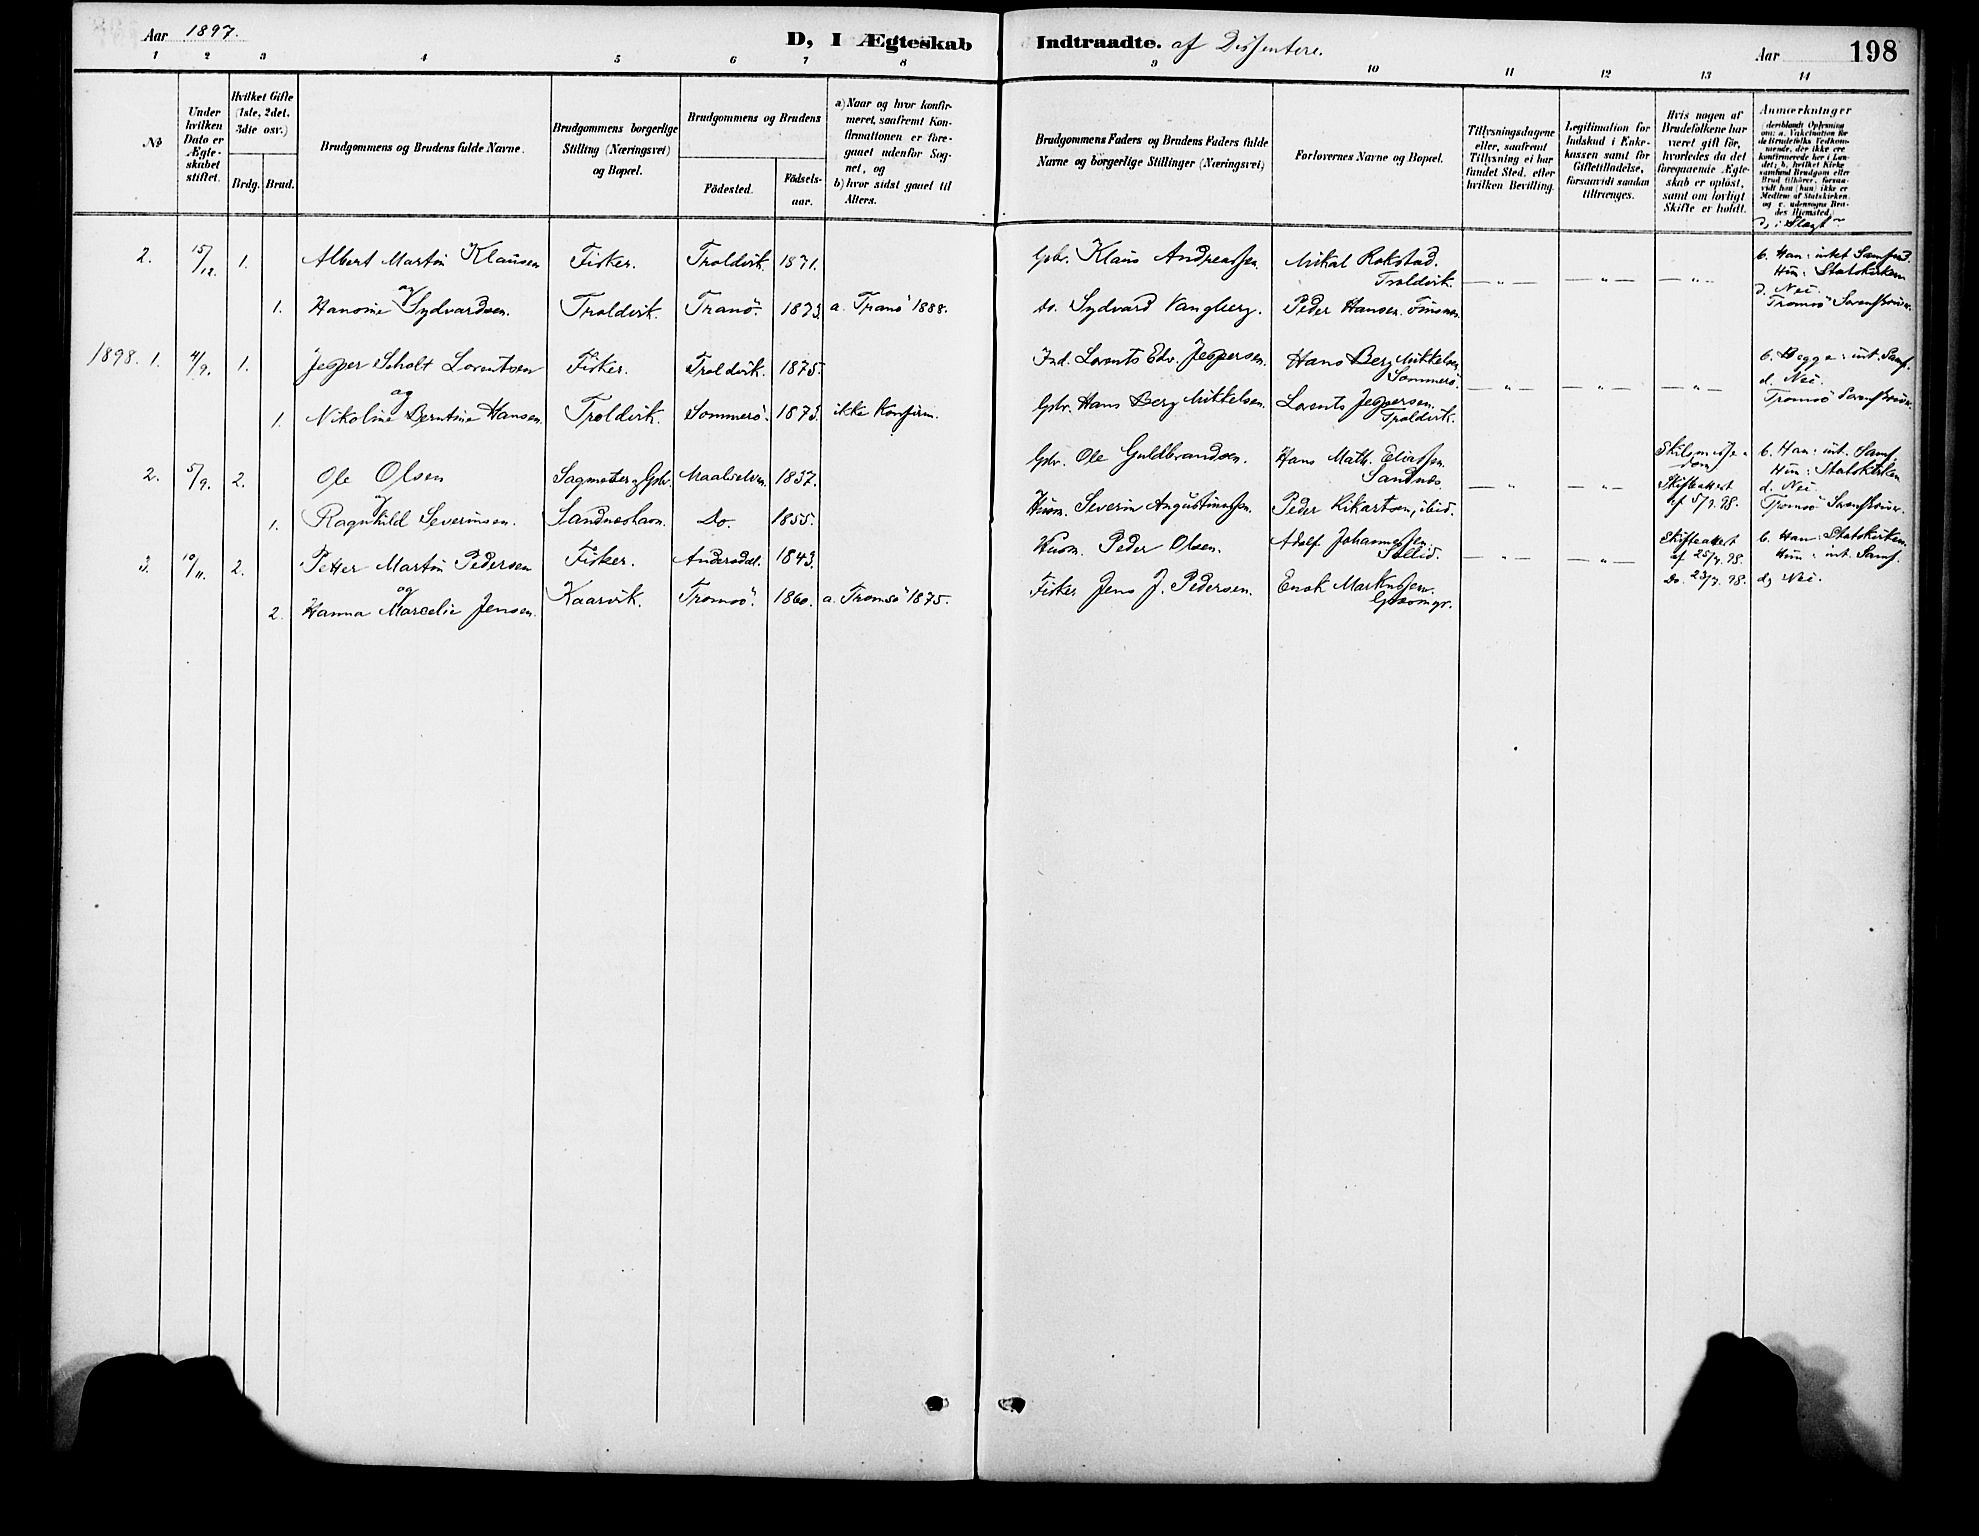 Aar 1897.
D, I Ægteskab Indtraadte. af Dissentere.
Aar 198
1 2 3 4 5 6 7 8 9 10 11 12 13 14
No
Under hvilken Dato er Ægteskabet stiftet.
Hvilket Gifte (1ste, 2det, 3die osv.)
Brdg. Brud.
Brudgommens og Brudens fulde Navne.
Brudgommens borgerlige Stilling (Næringsvei) og Bopæl.
Brudgommens og Brudens
Födested. Födsels-aar.
a) Naar og hvor konfirmeret, saafremt Konfirmationen er foregaaet udenfor Sognet, og
b) hvor sidst gaaet til Alters.
Brudgommens Faders og Brudens Faders fulde Navne og borgerlige Stillinger (Næringsvei)
Forlovernes Navne og Bopæl.
Tillysningsdagene eller, saafremt Tillysning ei har fundet Sted, efter hvilken Bevilling.
Legitimation for Indskud i Enkekassen samt for Giftetilladelse, forsaavidt saadan tiltrænges.
Hvis nogen af Brudefolkene har været gift för, hvorledes da det foregaaende Ægteskab er oplöst, samt om lovligt Skifte er holdt.
Anmærkninger
deriblandt Oplysning om: a. Vakcination for de Brudefolks Vedkommende, der ikke ere konfirmerede her i Landet; b. hvilket Kirkesamfund Brudgom eller Brud tilhörer, forsaavidt han (hun) ikke er Medlem af Statskirken, og c. udensogns Brudes Hjemsted.
d, i Slægt?
2. 15/12. 1. Albert Martin Klausen Fisker. Troldvik. 1871. Gbr. Klaus Andreassen Mikal Rokstad. Troldvik. — „ — — „ — — „ — b. Han: intet Samfund
Hun: Statskirken
d. Nei.
og
1. Hansine Sydvardsen. Troldvik. Tranö. 1873. a. Tranö 1888. do. Sydvard Vangberg. Peder Hansen. Finsnes. Tromsö Sorenskriver.
1898. 1. 4/9. 1. Jesper Scholt Lorentsen Fisker. Troldvik. 1875. Ind. Lorents Edv. Jespersen. Hans Berg Mikkelsen Sommerö. — „ — — „ — — „ — b. Begge: int. Samf.
d. Nei.
og
1. Nikoline Berntine Hansen. Troldvik. Sommerö. 1873. ikke Konfirm. Gbr. Hans Berg Mikkelsen. Lorents Jespersen. Troldvik. Tromsö Sorenskriver.
2. 5/9. 2. Ole Olsen Sagmester, Gbr. Maalselven. 1837. Gbr. Ole Guldbrandsen. Hans Math. Eliassen Sandnes — „ — — „ — Skilsmisse-dom b. Han: int. Samf.
Hun: Statskirken
og
1. Ragnhild Severinsen. Sandneshavn. Do. 1855. Husm. Severin Augustinussen. Peder Rikartsen, ibid. Skifteattest af 5/9. 98. d. Nei
Tromsö Sorenskriver.
3. 10/11. 2. Petter Martin Pedersen Fisker. Andersdal. 1843. Husm. Peder Olsen. Adolf Johannessen. — „ — — „ — Skifteattest af 25/7. 98. b. Han: Statskirken.
Hun: int. Samf.
og
2. Hanna Marcelie Jensen. Kaarvik. Tromsö. 1860. a. Tromsö 1875. Fisker Jens J. Pedersen. Enok Markussen. Do. 23/7. 98. d, Nei.